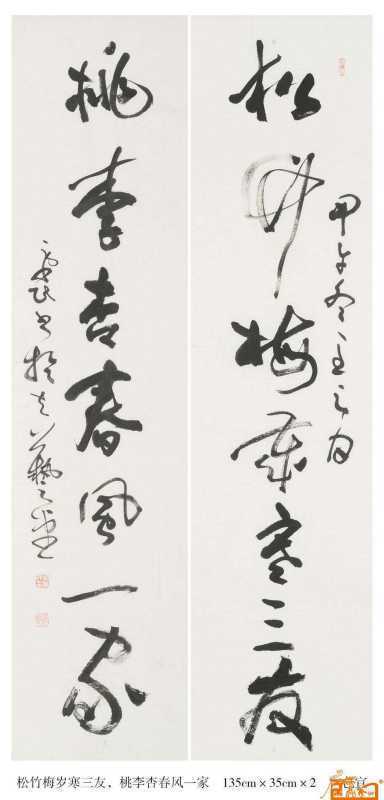 松竹梅歲寒三友
甲午冬至之日
桃李杏春風一家
松竹梅岁寒三友，桃李杏春风一家 135cm×35cm×2